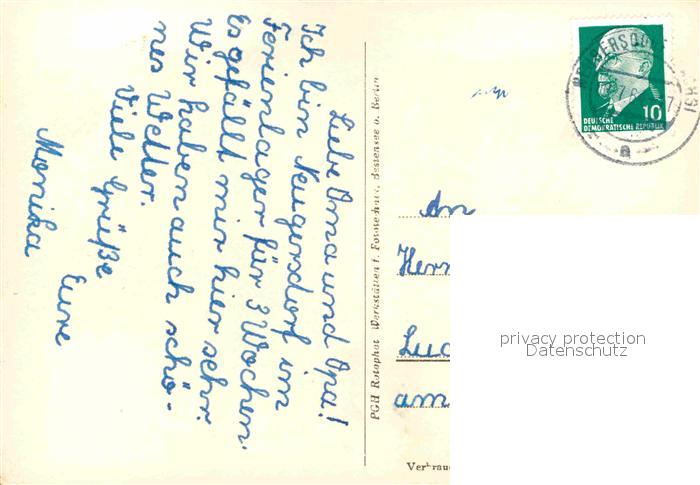 Liebe Oma und Opa!
Ich bin Neugersdorf im
Ferienlager für 3 Wochen.
Es gefällt mir hier sehr.
Wir haben auch schö-
nes Wetter.
Viele Grüße
Eure
Monika
PGH Rotophot Bestensee b. Berlin
10
DEUTSCHE
DEMOKRATISCHE REPUBLIK
a
An
Herr
Luc
am
privacy protection
Datenschutz